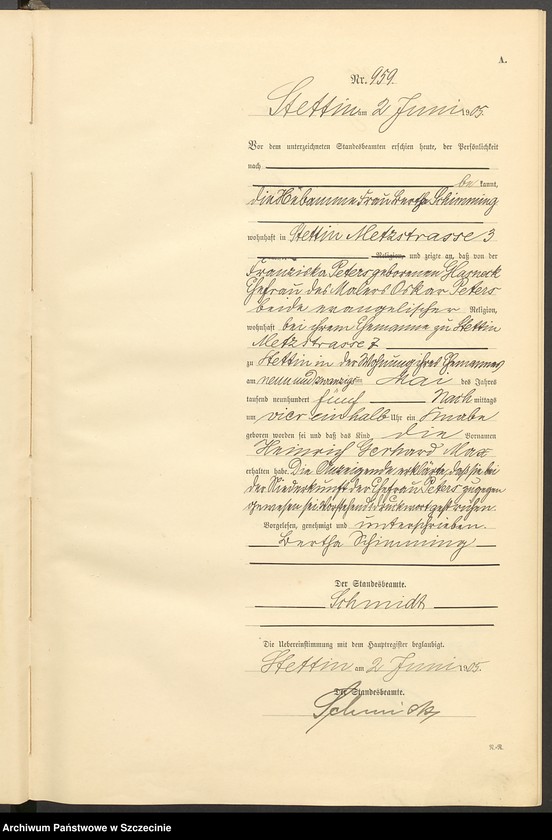 A.
Nr. 959.
Stettin am 2 Juni 1905.
Vor dem unterzeichneten Standesbeamten erschien heute, der Persönlichkeit
nach
be kannt,
die Hebamme Frau Bertha Schimming
wohnhaft in Stettin Metzstrasse 3
Religion, und zeigte an, daß von der
Franziska Peters geborenen
Ehefrau des Malers Oskar Peters
beide evangelischer Religion,
wohnhaft bei ihrem Ehemanne zu Stettin
Metzstrasse 7
zu Stettin in der Wohnung ihres Ehemannes
am neun und zwanzigsten Mai des Jahres
tausend neunhundert fünf Nach mittags
um vier ein halb Uhr ein Knabe
geboren worden sei und daß das Kind die Vornamen
Heinrich Gerhard Max
erhalten habe. Die Anzeigende erklärte, daß sie bei
der Niederkunft der Ehefrau Peters zugegen
gewesen sei. Vorstehend 1 Druckwort gestrichen.
Vorgelesen, genehmigt und unterschrieben
Bertha Schimming
Der Standesbeamte.
Schmidt
Die Uebereinstimmung mit dem Hauptregister beglaubigt.
Stettin am 2 Juni 1905.
Der Standesbeamte.
Archiwum Państwowe w Szczecinie